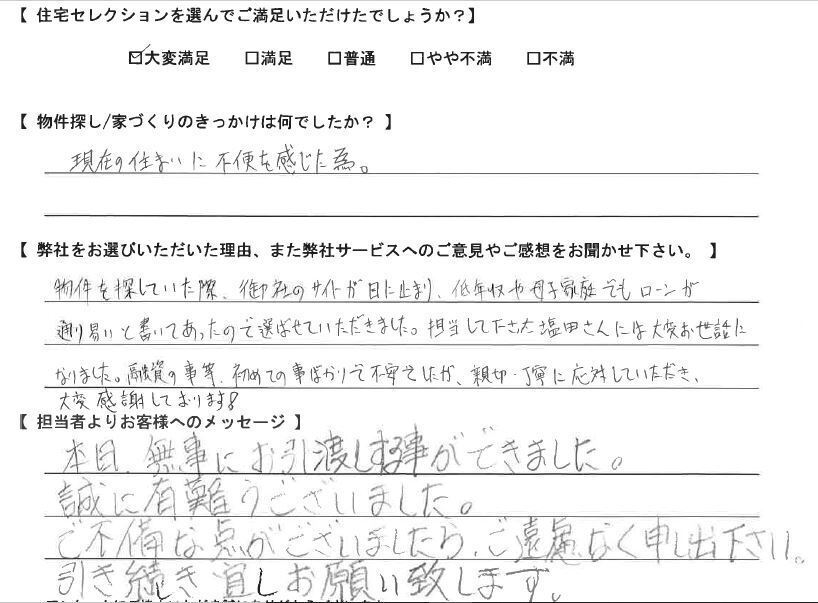 【 住宅セレクションを選んでご満足いただけたでしょうか？】
☑大変満足 □満足 □普通 □やや不満 □不満
【 物件探し/家づくりのきっかけは何でしたか？ 】
現在の住まいに不便を感じた為。
【 弊社をお選びいただいた理由、また弊社サービスへのご意見やご感想をお聞かせ下さい。 】
物件を探していた際、御社のサイトが目に止まり、低年収や母子家庭でもローンが
通り易いと書いてあったので選ばせていただきました。担当して下さった塩田さんには大変お世話に
なりました。融資の事等、初めての事ばかりで不安でしたが、親切・丁寧に応対していただき、
大変感謝しております!
【 担当者よりお客様へのメッセージ 】
本日、無事にお引渡しする事ができました。
誠に有難うございました。
ご不備な点がございましたら、ご遠慮なく申し出下さい。
引き続き宜しお願い致します。